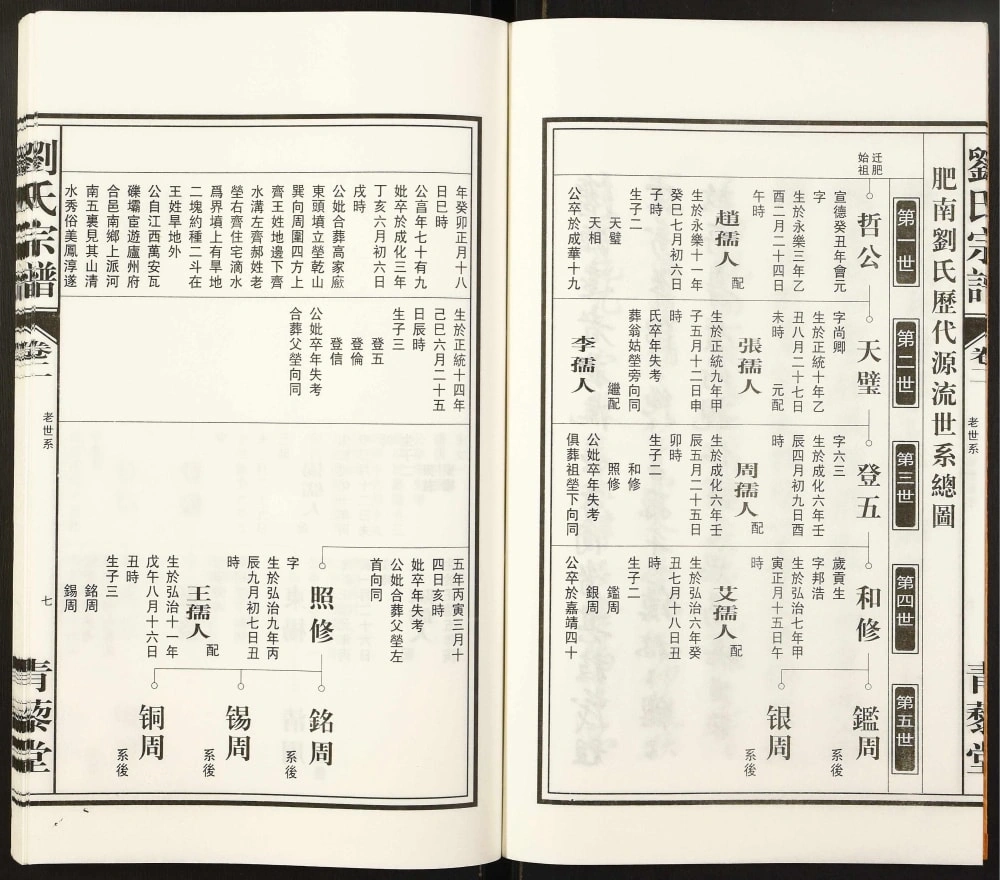 劉氏宗譜
卷二
老世系
青藜堂
肥南劉氏歷代源流世系總圖
第一世
第二世
第三世
第四世
第五世
迁肥
始祖
哲公
宣德癸丑年會元
字
生於永樂三年乙
酉二月二十四日
午時
趙孺人
配
生於永樂十一年
癸巳七月初六日
子時
生子二
天璧
天相
公卒於成華十九
天璧
字尚卿
生於正統十年乙
丑八月二十七日
未時
元配
張孺人
生於正統九年甲
子五月十二日申
時
氏卒年失考
葬翁姑塋旁向同
繼配
李孺人
登五
字六三
生於成化六年壬
辰四月初九日酉
時
周孺人
配
生於成化六年壬
辰五月二十五日
卯時
生子二
和修
照修
公妣卒年失考
俱葬祖塋下向同
和修
歲貢生
字邦浩
生於弘治七年甲
寅正月十五日午
時
艾孺人
配
生於弘治六年癸
丑七月十八日丑
時
生子二
鑑周
銀周
公卒於嘉靖四十
鑑周
系後
银周
系後
年癸卯正月十八
日巳時
公言年七十有九
妣卒於成化三年
丁亥六月初六日
戌時
公妣合葬高家廒
東頭墳立塋乾山
巽向周圍四方上
齊王姓地邊下齊
水溝左齊郝姓老
塋右齊住宅滴水
爲界墳上有旱地
二塊約種二斗在
王姓旱地外
公自江西萬安瓦
礫壩宦遊廬州府
合邑南鄉上派河
南五裏見其山清
水秀俗美鳳淳遂
生於正統十四年
己巳六月二十五
日辰時
生子三
登五
登倫
登信
公妣卒年失考
合葬父塋向同
五年丙寅三月十
四日亥時
妣卒年失考
公妣合葬父塋左
首向同
照修
字
生於弘治九年丙
辰九月初七日丑
時
王孺人
配
生於弘治十一年
戊午八月十六日
丑時
生子三
銘周
錫周
銘周
系後
锡周
系後
铜周
系後
劉氏宗譜
卷二
老世系
七
青藜堂